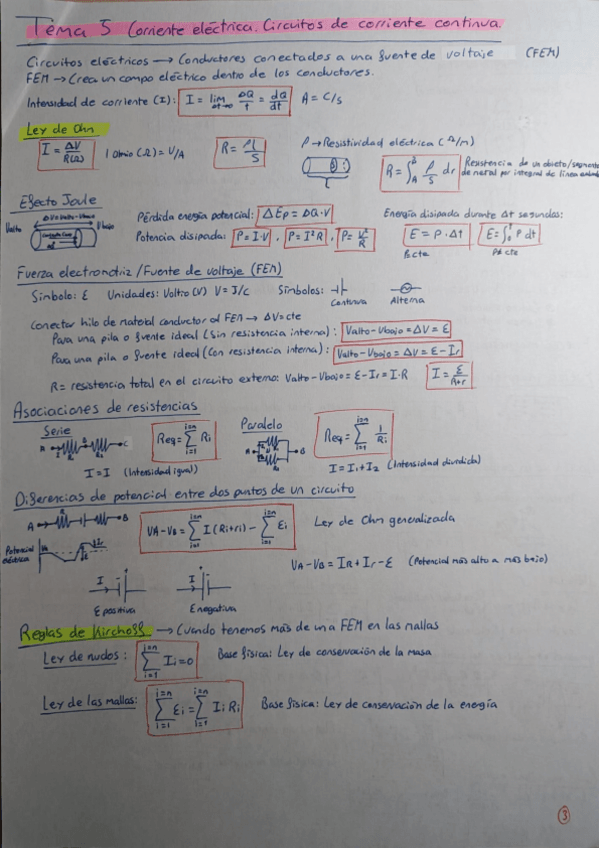 Tema 5 Corriente eléctrica. Circuitos de corriente continua.
Circuitos eléctricos → Conductores conectados a una fuente de voltaje (FEM)
FEM → Crea un campo eléctrico dentro de los conductores.
Intensidad de corriente (I): I = lim Δt→0 ΔQ/t = dQ/dt A = C/s
Ley de Ohm
I = ΔV/R(Ω) 1 Ohmio (Ω) = V/A R = ρl/S ρ → Resistividad eléctrica (Ω/m)
R = ∫_A^B ρ/S dr Resistencia de un objeto/segmento
de metal por integral de línea
Efecto Joule
Valto Vbajo
Pérdida energía potencial: ΔEp = ΔQ·V Energía disipada durante Δt segundos:
Potencia disipada: P = I·V, P = I²R, P = V²/R E = P·Δt E = ∫_0^t P dt
P=cte P≠cte
Fuerza electromotriz / Fuente de voltaje (FEM)
Símbolo: ε Unidades: Voltio (V) V = J/C Símbolos: Continua Alterna
Conectar hilo de material conductor al FEM → ΔV = cte
Para una pila o fuente ideal (Sin resistencia interna): Valto - Vbajo = ΔV = ε
Para una pila o fuente ideal (Con resistencia interna): Valto - Vbajo = ΔV = ε - Ir
R = resistencia total en el circuito externo: Valto - Vbajo = ε - Ir = I·R I = ε/(R+r)
Asociaciones de resistencias
Serie Req = Σ_{i=1}^{i=n} Ri Paralelo Req = Σ_{i=1}^{i=n} 1/Ri
A C A B
I = I (Intensidad igual) I = I₁ + I₂ (Intensidad dividida)
Diferencias de potencial entre dos puntos de un circuito
A B VA - VB = Σ_{i=1}^{i=n} I (Ri + ri) - Σ_{i=1}^{i=n} Ei Ley de Ohm generalizada
Potencial
eléctrico
VA - VB = IR + Ir - ε (Potencial más alto a más bajo)
I I
ε positiva ε negativa
Reglas de Kirchoff → Cuando tenemos más de una FEM en las mallas
Ley de nudos: Σ_{i=1}^{i=n} Ii = 0 Base física: Ley de conservación de la masa
Ley de las mallas: Σ_{i=1}^{i=n} Ei = Σ_{i=1}^{i=n} Ii Ri Base física: Ley de conservación de la energía
3